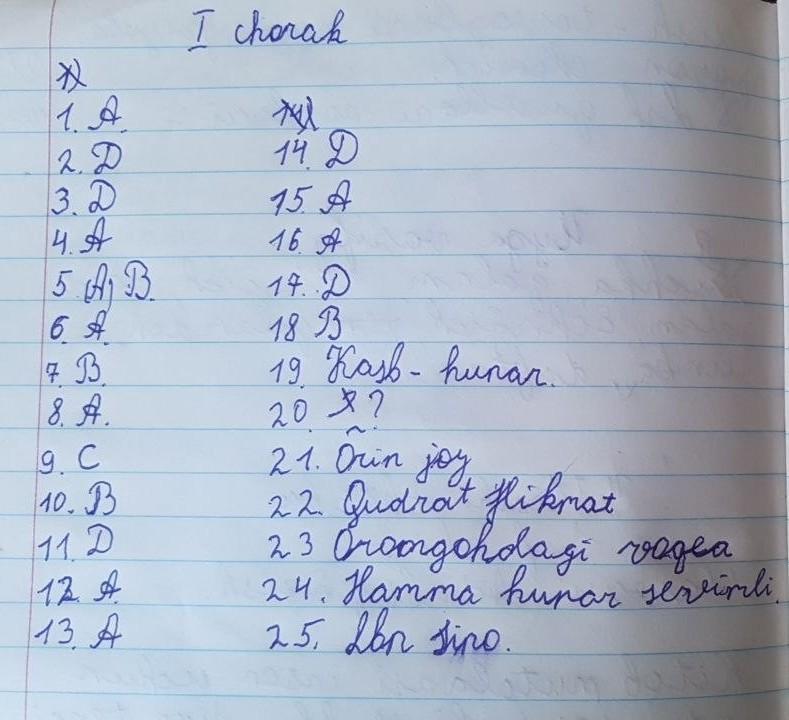 I chorak
1. A.
2. D
3. D
4. A
5 (A) B.
6. A.
7. B.
8. A.
9. C
10. B
11. D
12. A
13. A
14. D
15. A
16. A
17. D
18 B
19. Kasb-hunar.
20. ?
21. Õrin joy
22. Qudrat Hikmat
23 Oromgohdagi voqea
24. Hamma hunar sevimli.
25. Ibn sino.